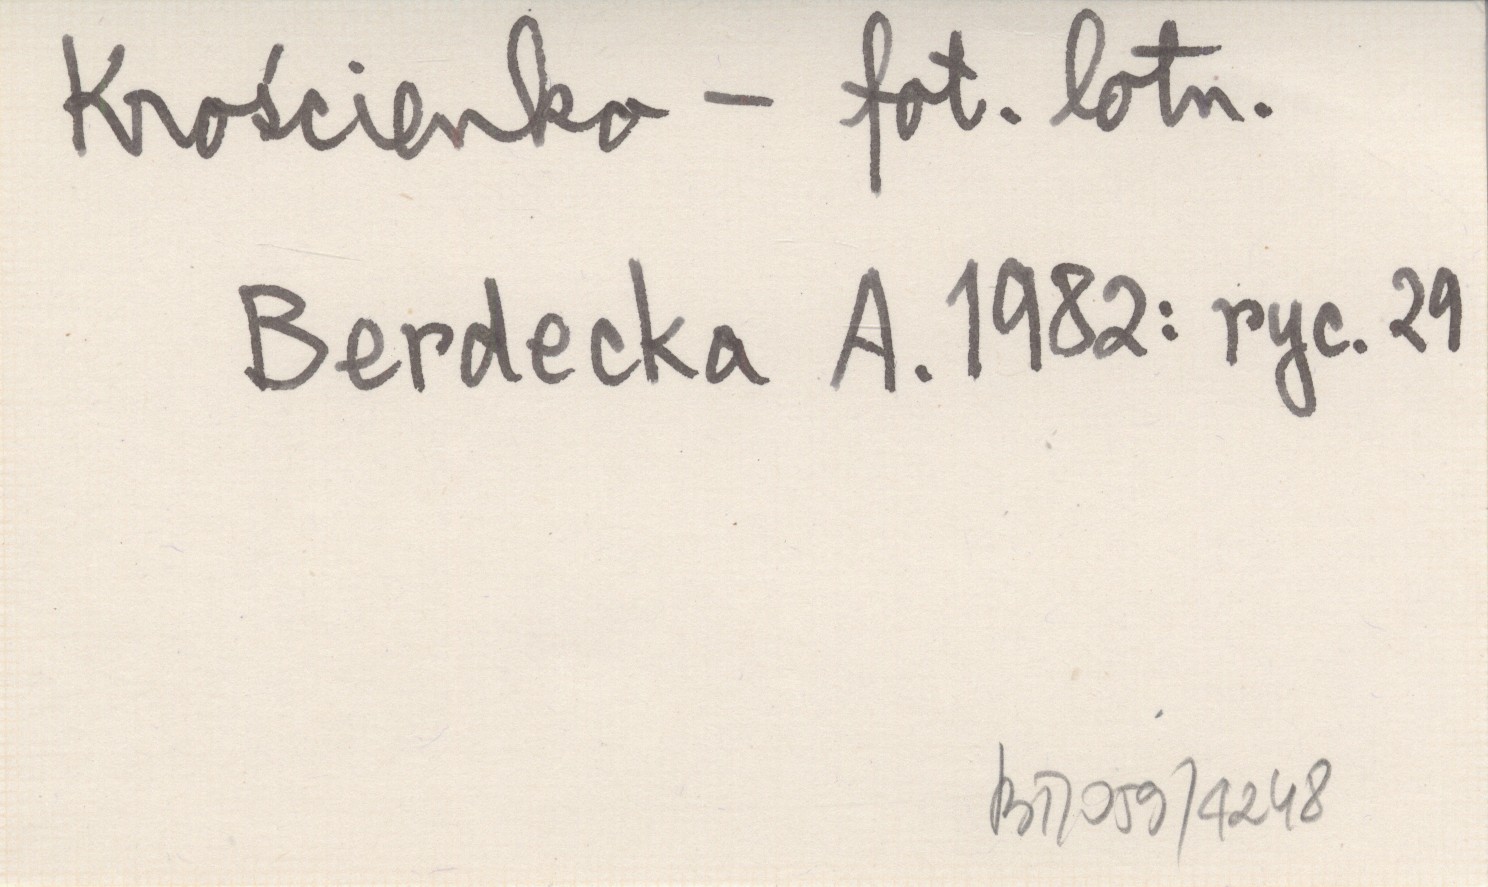 Krościenko – fot. lotn.
Berdecka A. 1982: ryc. 29
BT/059/4248